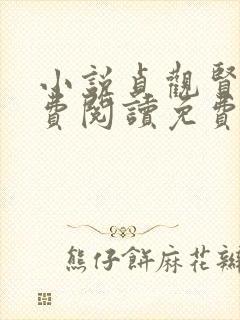 小說貞觀賢
費閱讀免費
熊仔餅麻花辮